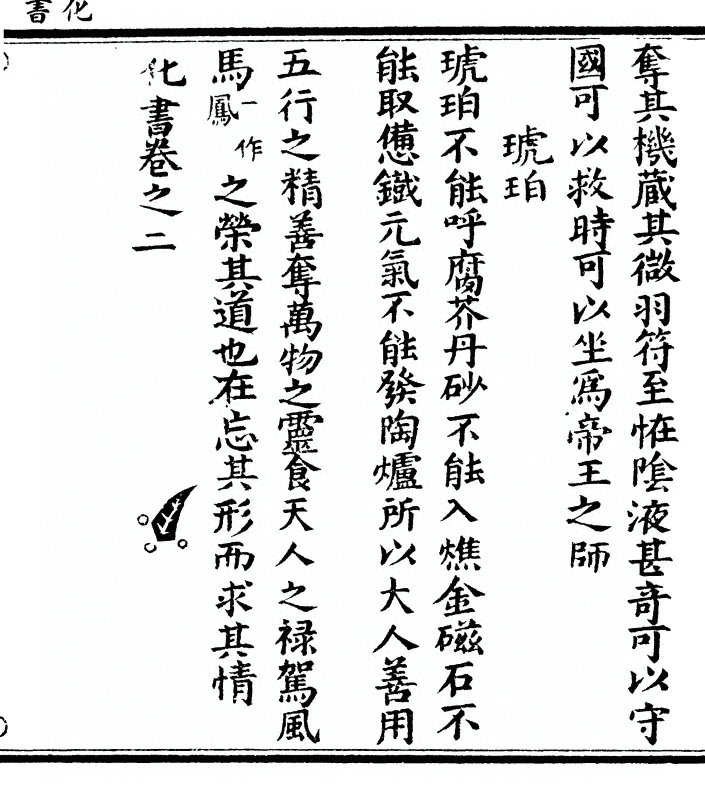 化書
奪其機藏其微羽符至恠陰液甚竒可以守
國可以救時可以坐爲帝王之師
琥珀
琥珀不能呼腐芥丹砂不能入燋金磁石不
能取憊鐵元氣不能發陶爐所以大人善用
五行之精善奪萬物之靈食天人之禄駕風
馬一作鳳之榮其道也在忘其形而求其情
化書卷之二